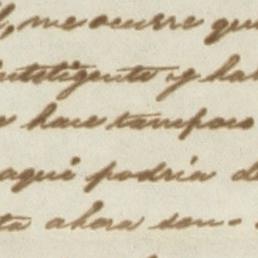 , me ocurre que
inteligente y ha
hace tampoco
aqui podria d
ta ahora sen-